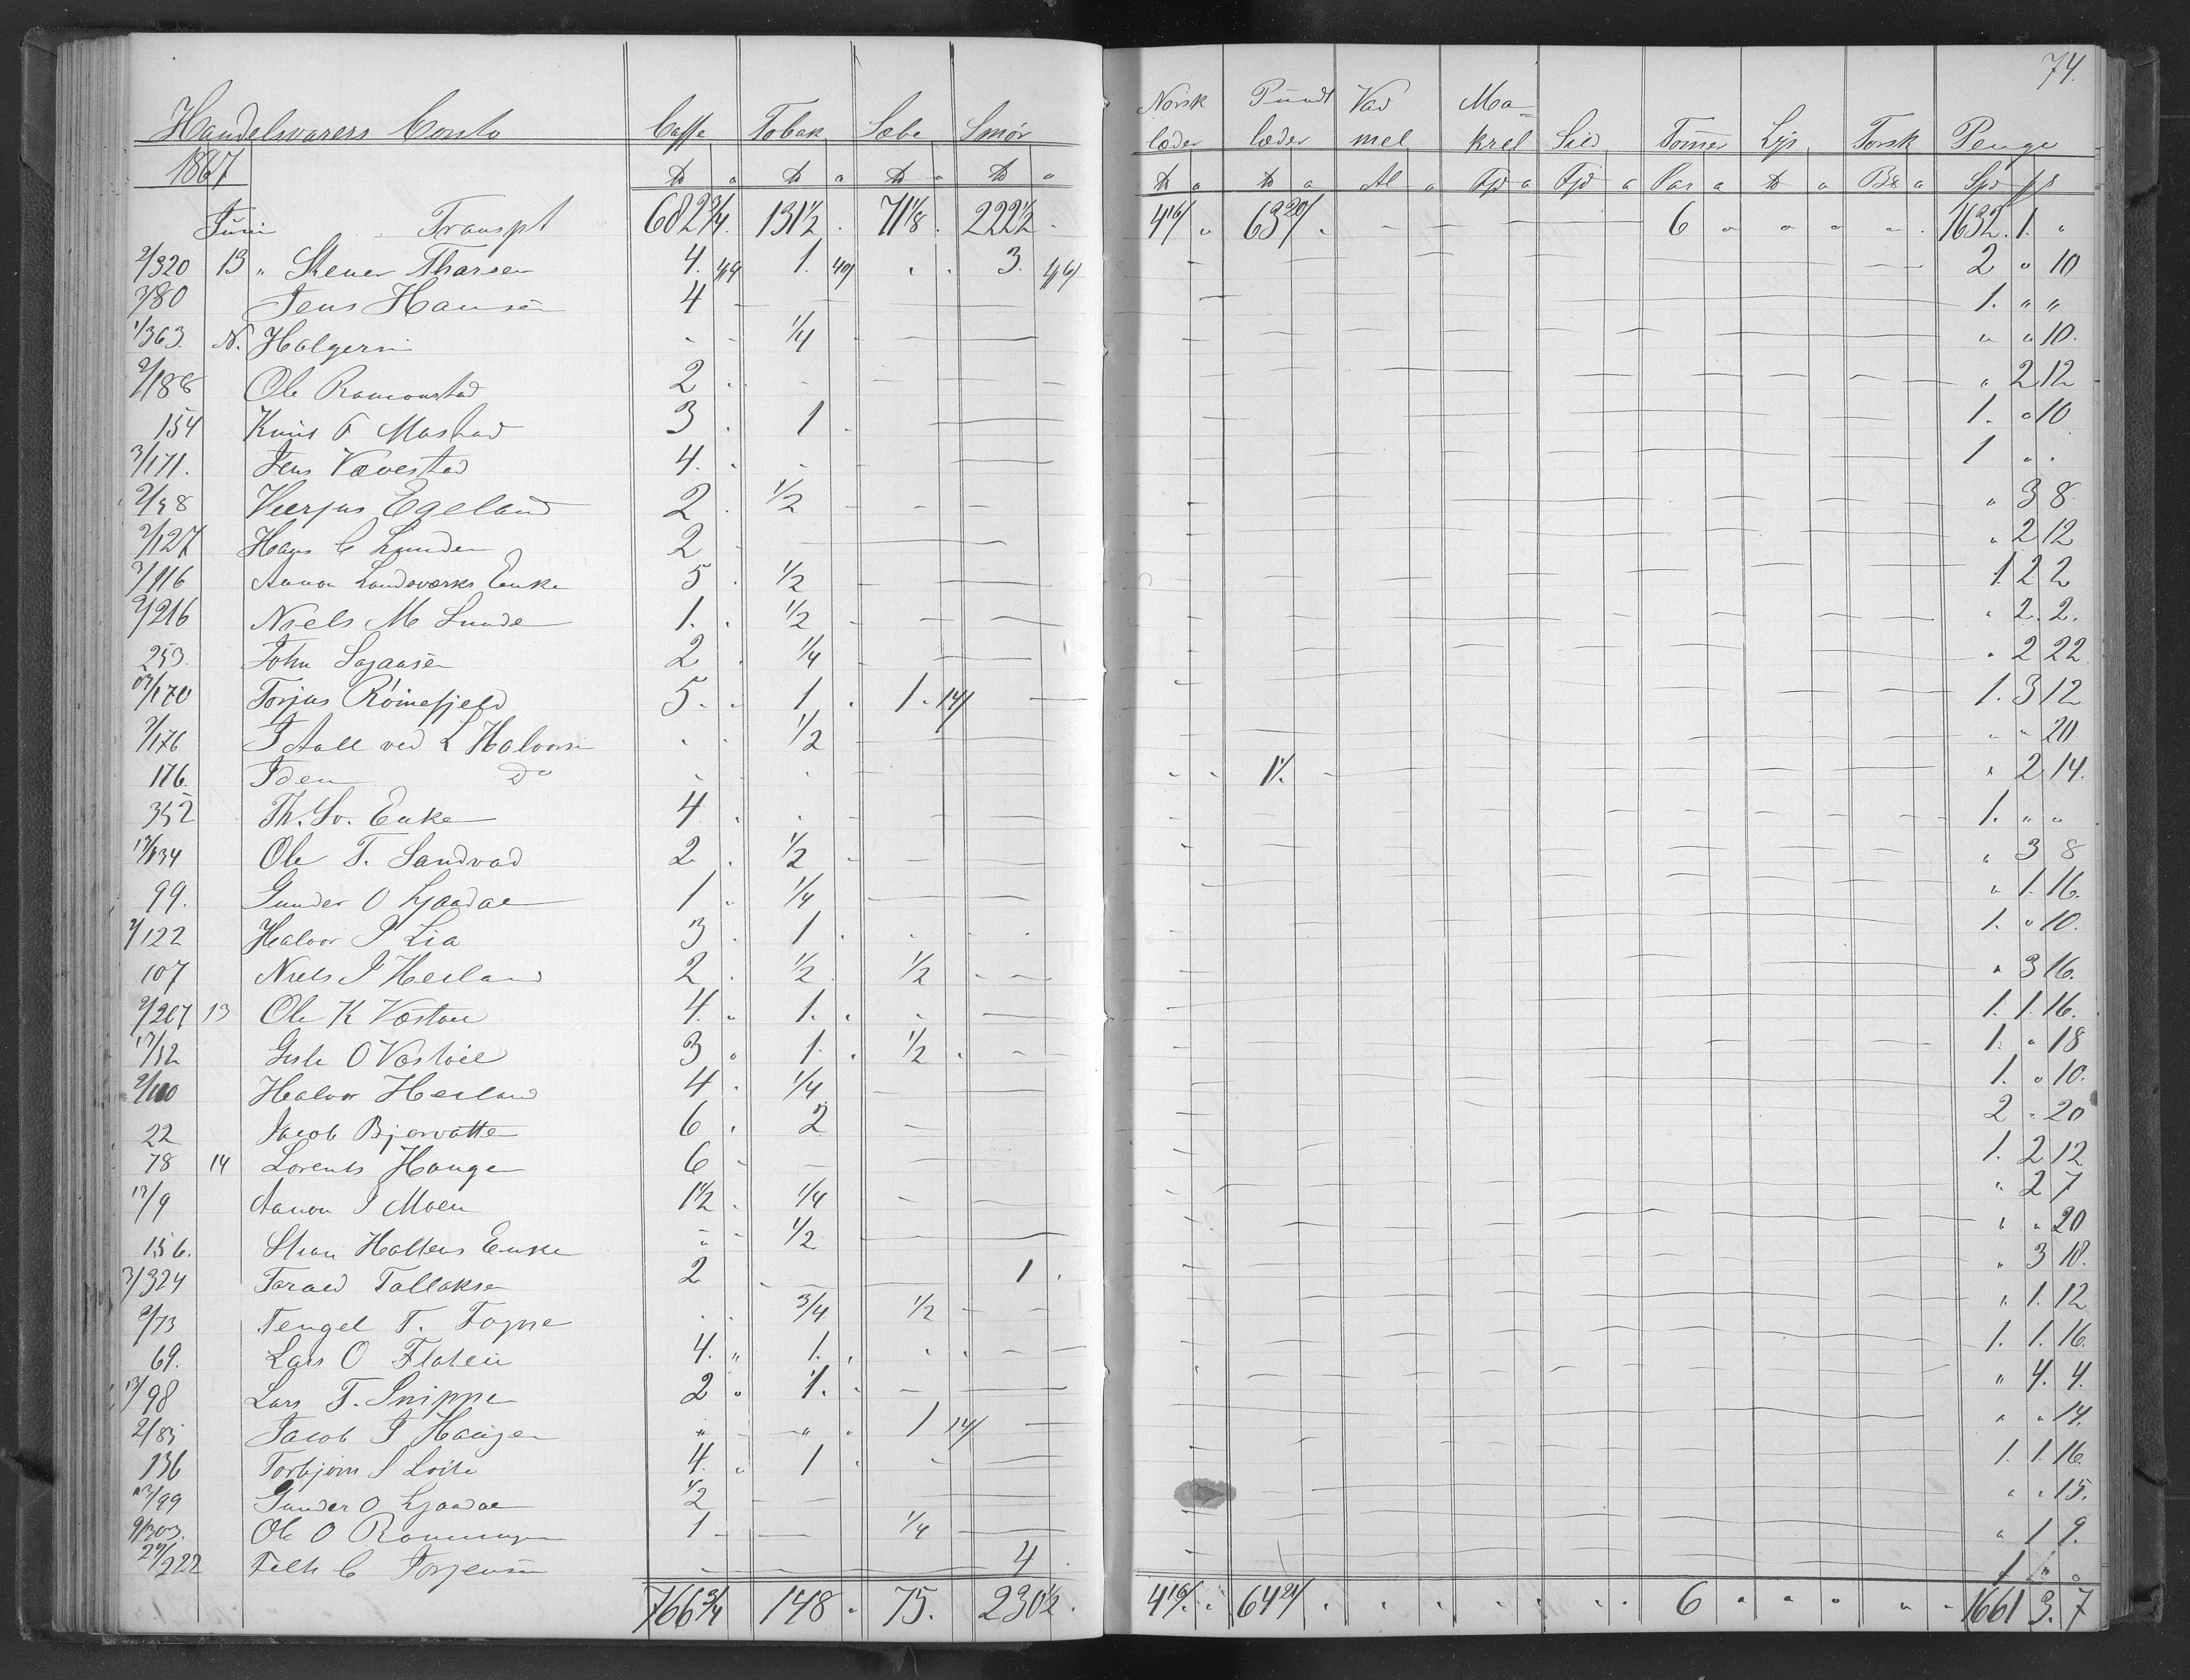 74.
Handelsvarers Conto Caffe Tobak Sæbe Smør Norsk læder Pundt læder Vadmel Makrel Sild Tønner Lys Torsk Penge
1867 ℔ ℔ ℔ ℔ ℔ ℔ Al Fjd Fjd Par ℔ Spd
Juni Transpt 682 3/4 131 1/2 71 1/8 222 1/2 4 16/ 63 20/ 6 1632 . 1 . "
2/320 13 " Stener Tharsen 4. 1. 3. 2 " 10
3/80 Jens Hansen 4 1. " "
1/363. N. Holgersen 1/4 " " 10.
2/188 Ole Ramonstad 2 " 2 12
154 Knut O Mostad 3 1 1. " 10
3/171. Jens Vævestad 4. 1 " .
Verjus Egeland 2 1/2 " 3 8
2/127 Hans C Lunden 2 " 2 12
Aanon Landsværks Enke 5 1/2 1. 2 2
2/216 Niels M Lunde 1. 1/2 " 2. 2.
253. John 2 1/4 " 2 22.
/170 Torjus Røinefjeld 5. 1 1. 14/ 1. 3 12
2/176 J Aall ved L Halvorsen 1/2 " " 20.
176. Idem Do 1/. " 2 14.
352 Th. Sv. Enke 4 1. " "
Ole T. Sandvad 2 1/2 " 3 8
99. Gunder O Ljaadal 1 1/4 " 1. 16.
2/122 Halvor P Lia 3 1 1. " 10.
107 Niels J Heiland 2 1/2 1/2 " 3 16.
2/267 13 Ole K Væstøl 4. 1. 1. 1. 16.
O Væstøil 3 1 1/2 1. " 18
Halvor Heiland 4 1/4 1. " 10.
22 Jacob Bjorvatten 6 2 2 " 20
78 14 Lorents Haugen 6 1. 2 12
13/9 Aanon J Moen 1 1/2 1/4 " 2 7
156. Stian Holtens Enke 1/2 " " 20
3/324 Tarald Tallaksen 2 1 " 3 18.
2/73 Tengel T. 3/4 1/2 " 1. 12
69. Lars O Flaten 4. 1. 1. 1. 16.
13/98 Lars T. Snippe 2 1. " 4. 4.
2/83 Jacob J Haugen 1 14/ " " 14.
136 Torbjørn S 4. 1 1. 1. 16.
13/99 Gunder O Ljaadal 1/2 " " 15.
9/303. Ole O Ronningen 1 1/4 " 1 9.
/222 C Torjensen 4 1 " "
766 3/4 148 75. 230 1/2 4 16/ 64 21/ 6 1661 3. 7